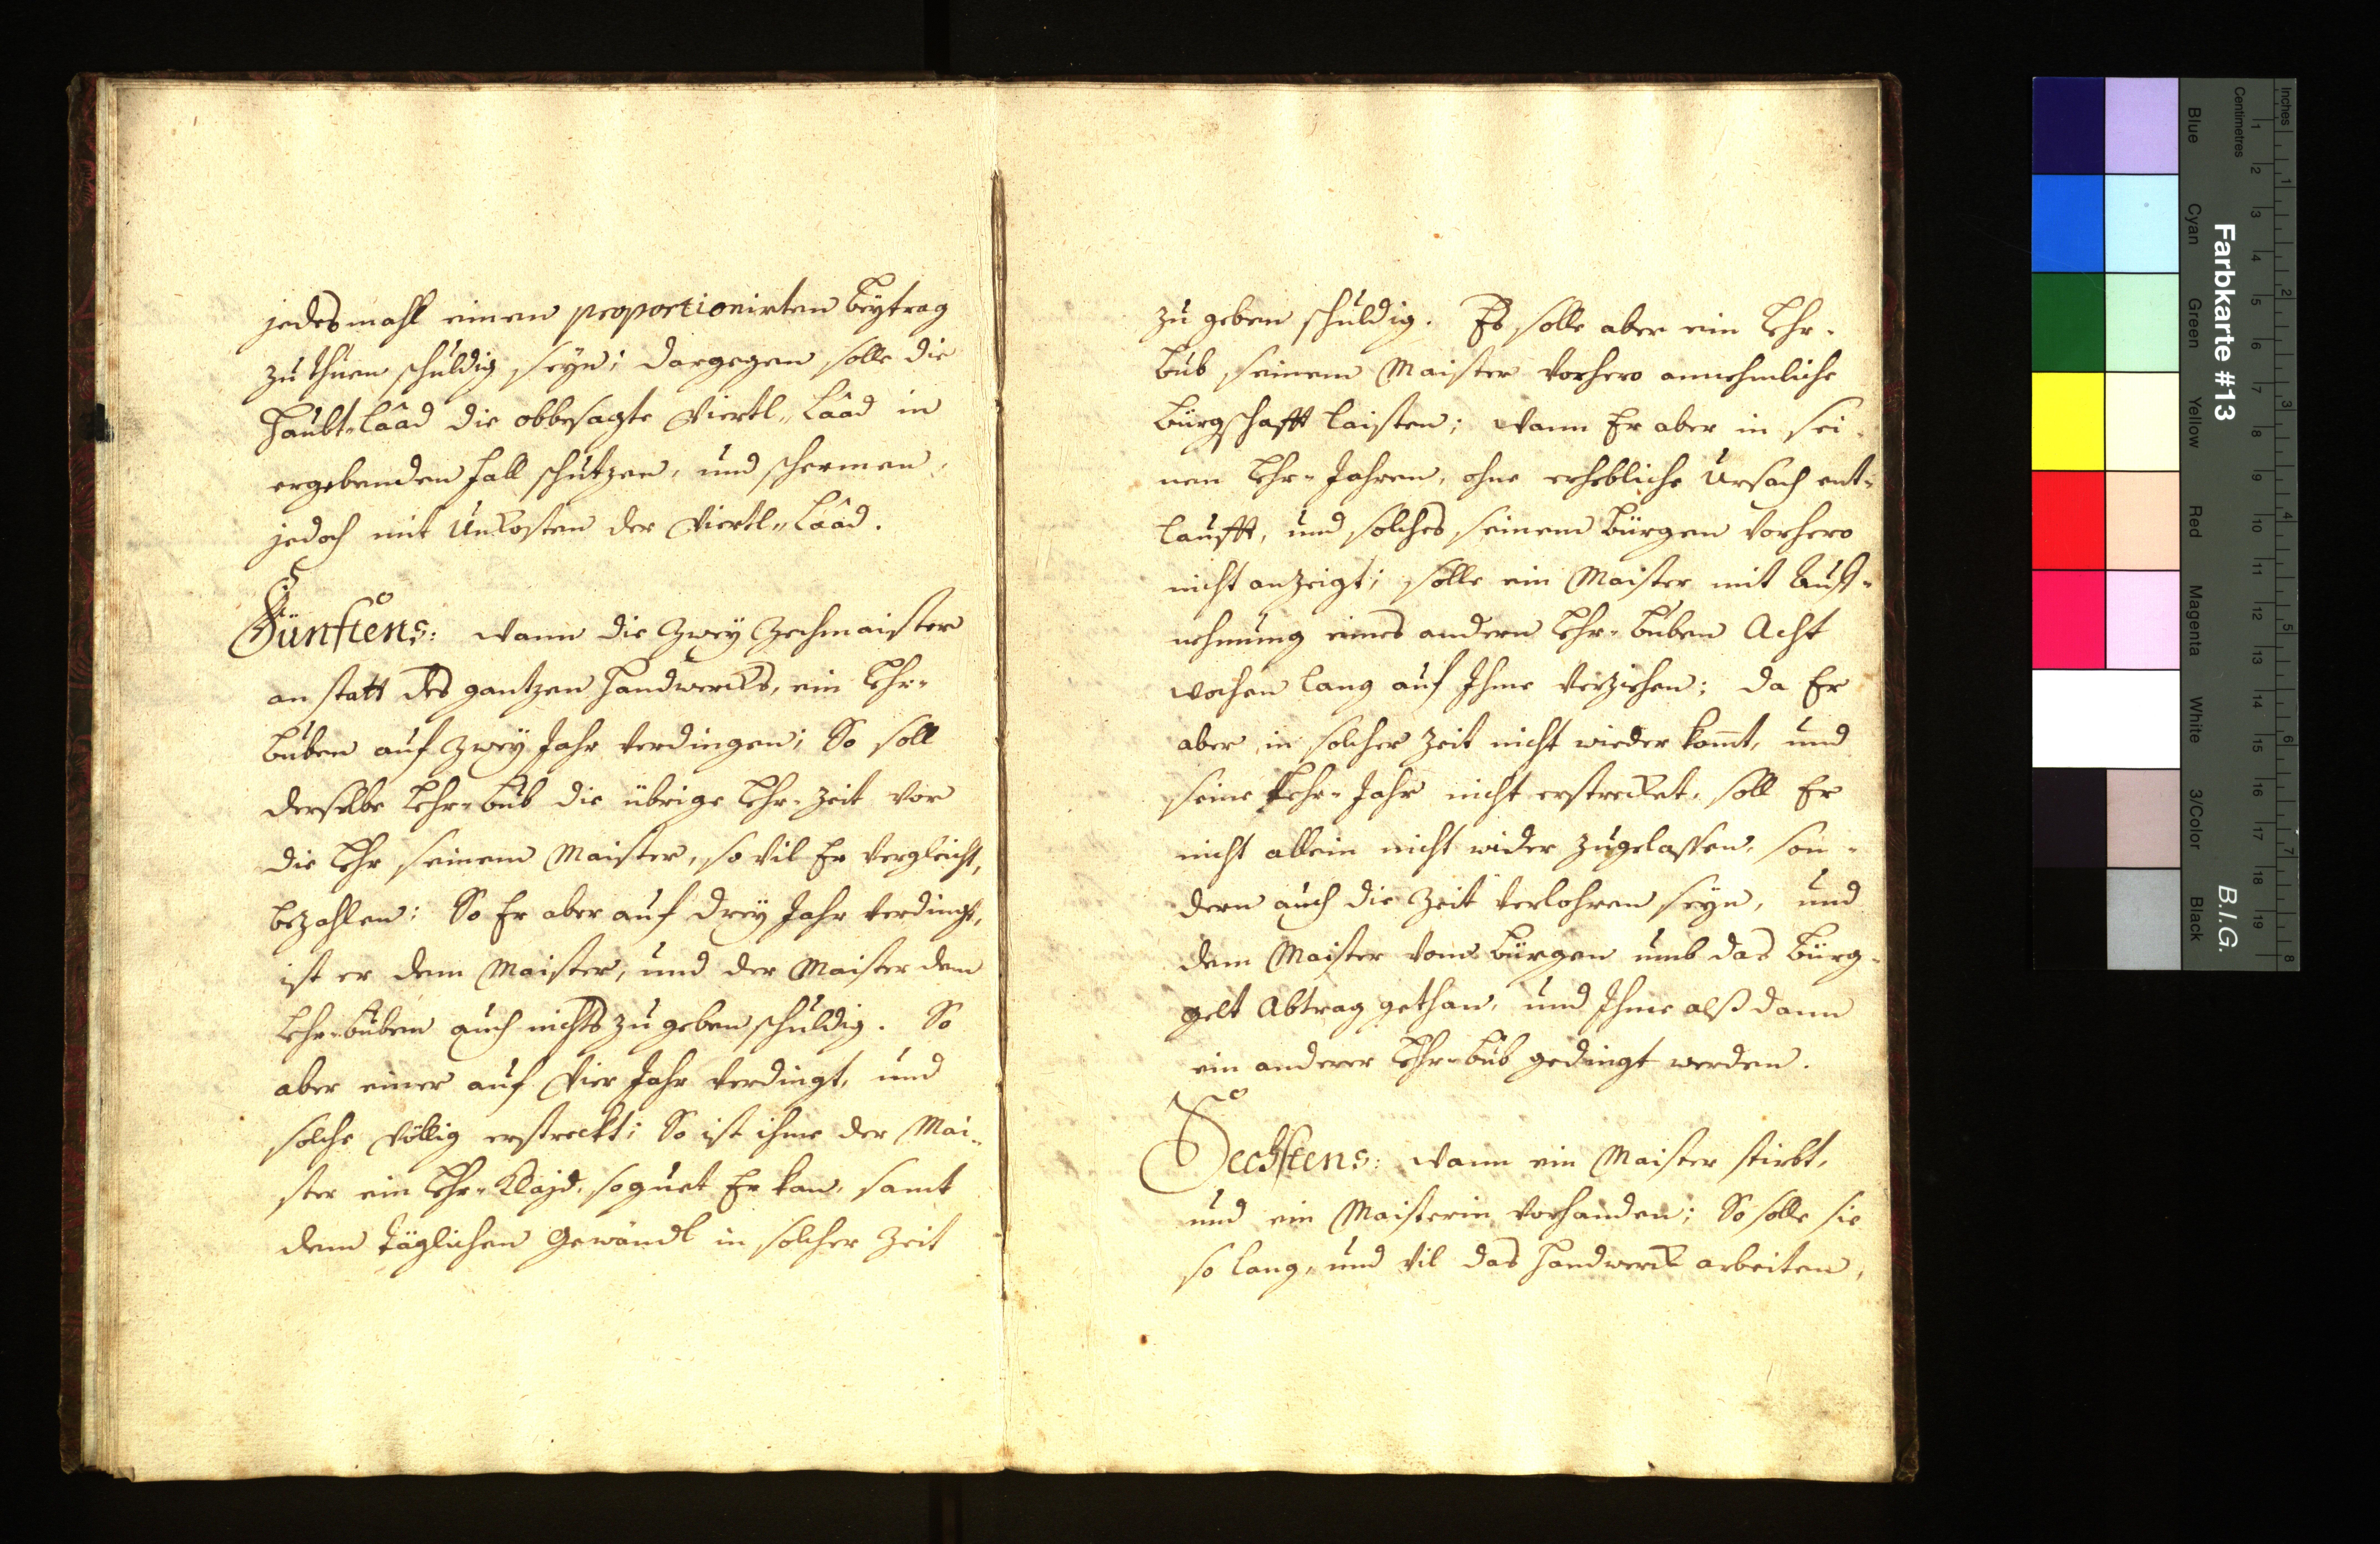 jedesmahl einen proportionirten beÿtrag
zu thuen schuldig seÿn; dargegen solle die
Haubt-Lâad die obbesagte Viertl-Lâad in
ergebenden fall schutzen, und schermen,
jedoch mit Unkosten der Viertl-Lâad.
Fünftens: Wann die Zweÿ Zechmaister
anstatt des gantzen Handwercks, ein Lehr-
buben auf Zweÿ Jahr verdingen; So soll
derselbe Lehr-bub die übrige Lehr-Zeit vor
die Lehr seinem Maister, so vil Er vergleicht,
bezahlen: So Er aber auf dreÿ Jahr verdingt,
ist er dem Maister, und der Maister dem
Lehr-buben auch nichts zu geben schuldig. So
aber einer auf Vier Jahr verdingt, und
solche völlig erstreckt; So ist ihme der Mai-
ster ein Lehr-Klajd, so guet Er kan, samt
dem täglichen Gewandl in solcher Zeit
zu geben schuldig. Es solle aber ein Lehr-
bub seinem Maister vorhero annehmliche
bürgschafft laisten; Wann Er aber in sei-
nen Lehr-Jahren, ohne erhebliche Ursach ent-
laufft, und solches seinem bürgen vorhero
nicht anzeigt; solle ein Maister mit Auf-
nehmung eines andern Lehr-buben Acht
Wochen lang auf Ihme verziehen; da Er
aber in solcher Zeit nicht wieder komt, und
seine Lehr-Jahr nicht erstrecket, soll Er
nicht allein nicht wider zugelassen, son-
dern auch die Zeit verlohren seÿn, und
dem Maister vom bürgen umb das bürg-
gelt Abtrag gethan, und Ihme alß dann
ein anderer Lehr-bub gedingt werden.
Sechstens: Wann ein Maister stirbt,
und ein Maisterin vorhanden; So solle sie
so lang, und vil das Handwerck arbeiten,
Inches
Centimetres
Farbkarte #13
B.I.G.
Blue
Cyan
Green
Yellow
Red
Magenta
White
3/Color
Black
1 2 3 4 5 6 7 8 9 10 11 12 13 14 15 16 17 18 19
1 2 3 4 5 6 7 8